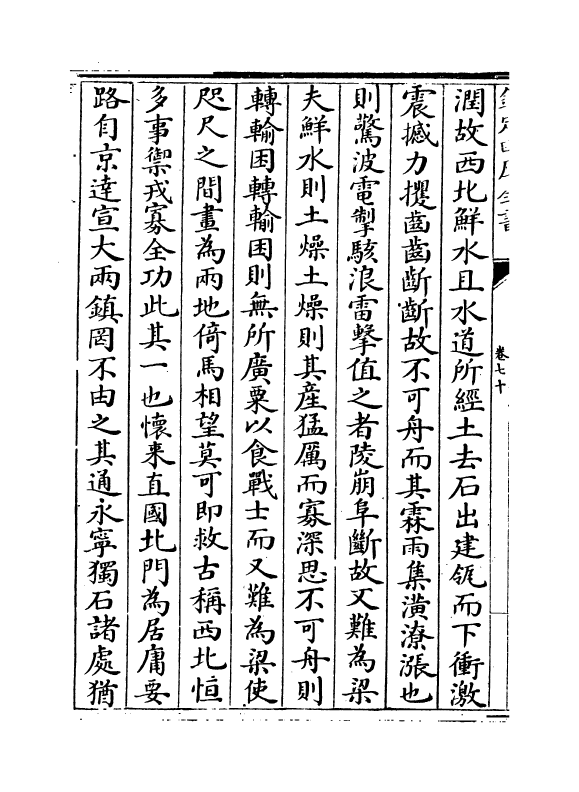 卷七十
潤故西北鮮水且水道所經土去石出建瓴而下衝激
震撼力攖齒齒齗齗故不可舟而其霖雨集潢潦漲也
則驚波電掣駭浪雷擊值之者陵崩阜斷故又難為梁
夫鮮水則土燥土燥則其產猛厲而寡深思不可舟則
轉輸困轉輸困則無所廣粟以食戰士而又難為梁使
咫尺之間畫為兩地倚馬相望莫可即救古稱西北恒
多事禦戎寡全功此其一也懷來直國北門為居庸要
路自京達宣大兩鎮罔不由之其通永寧獨石諸處猶